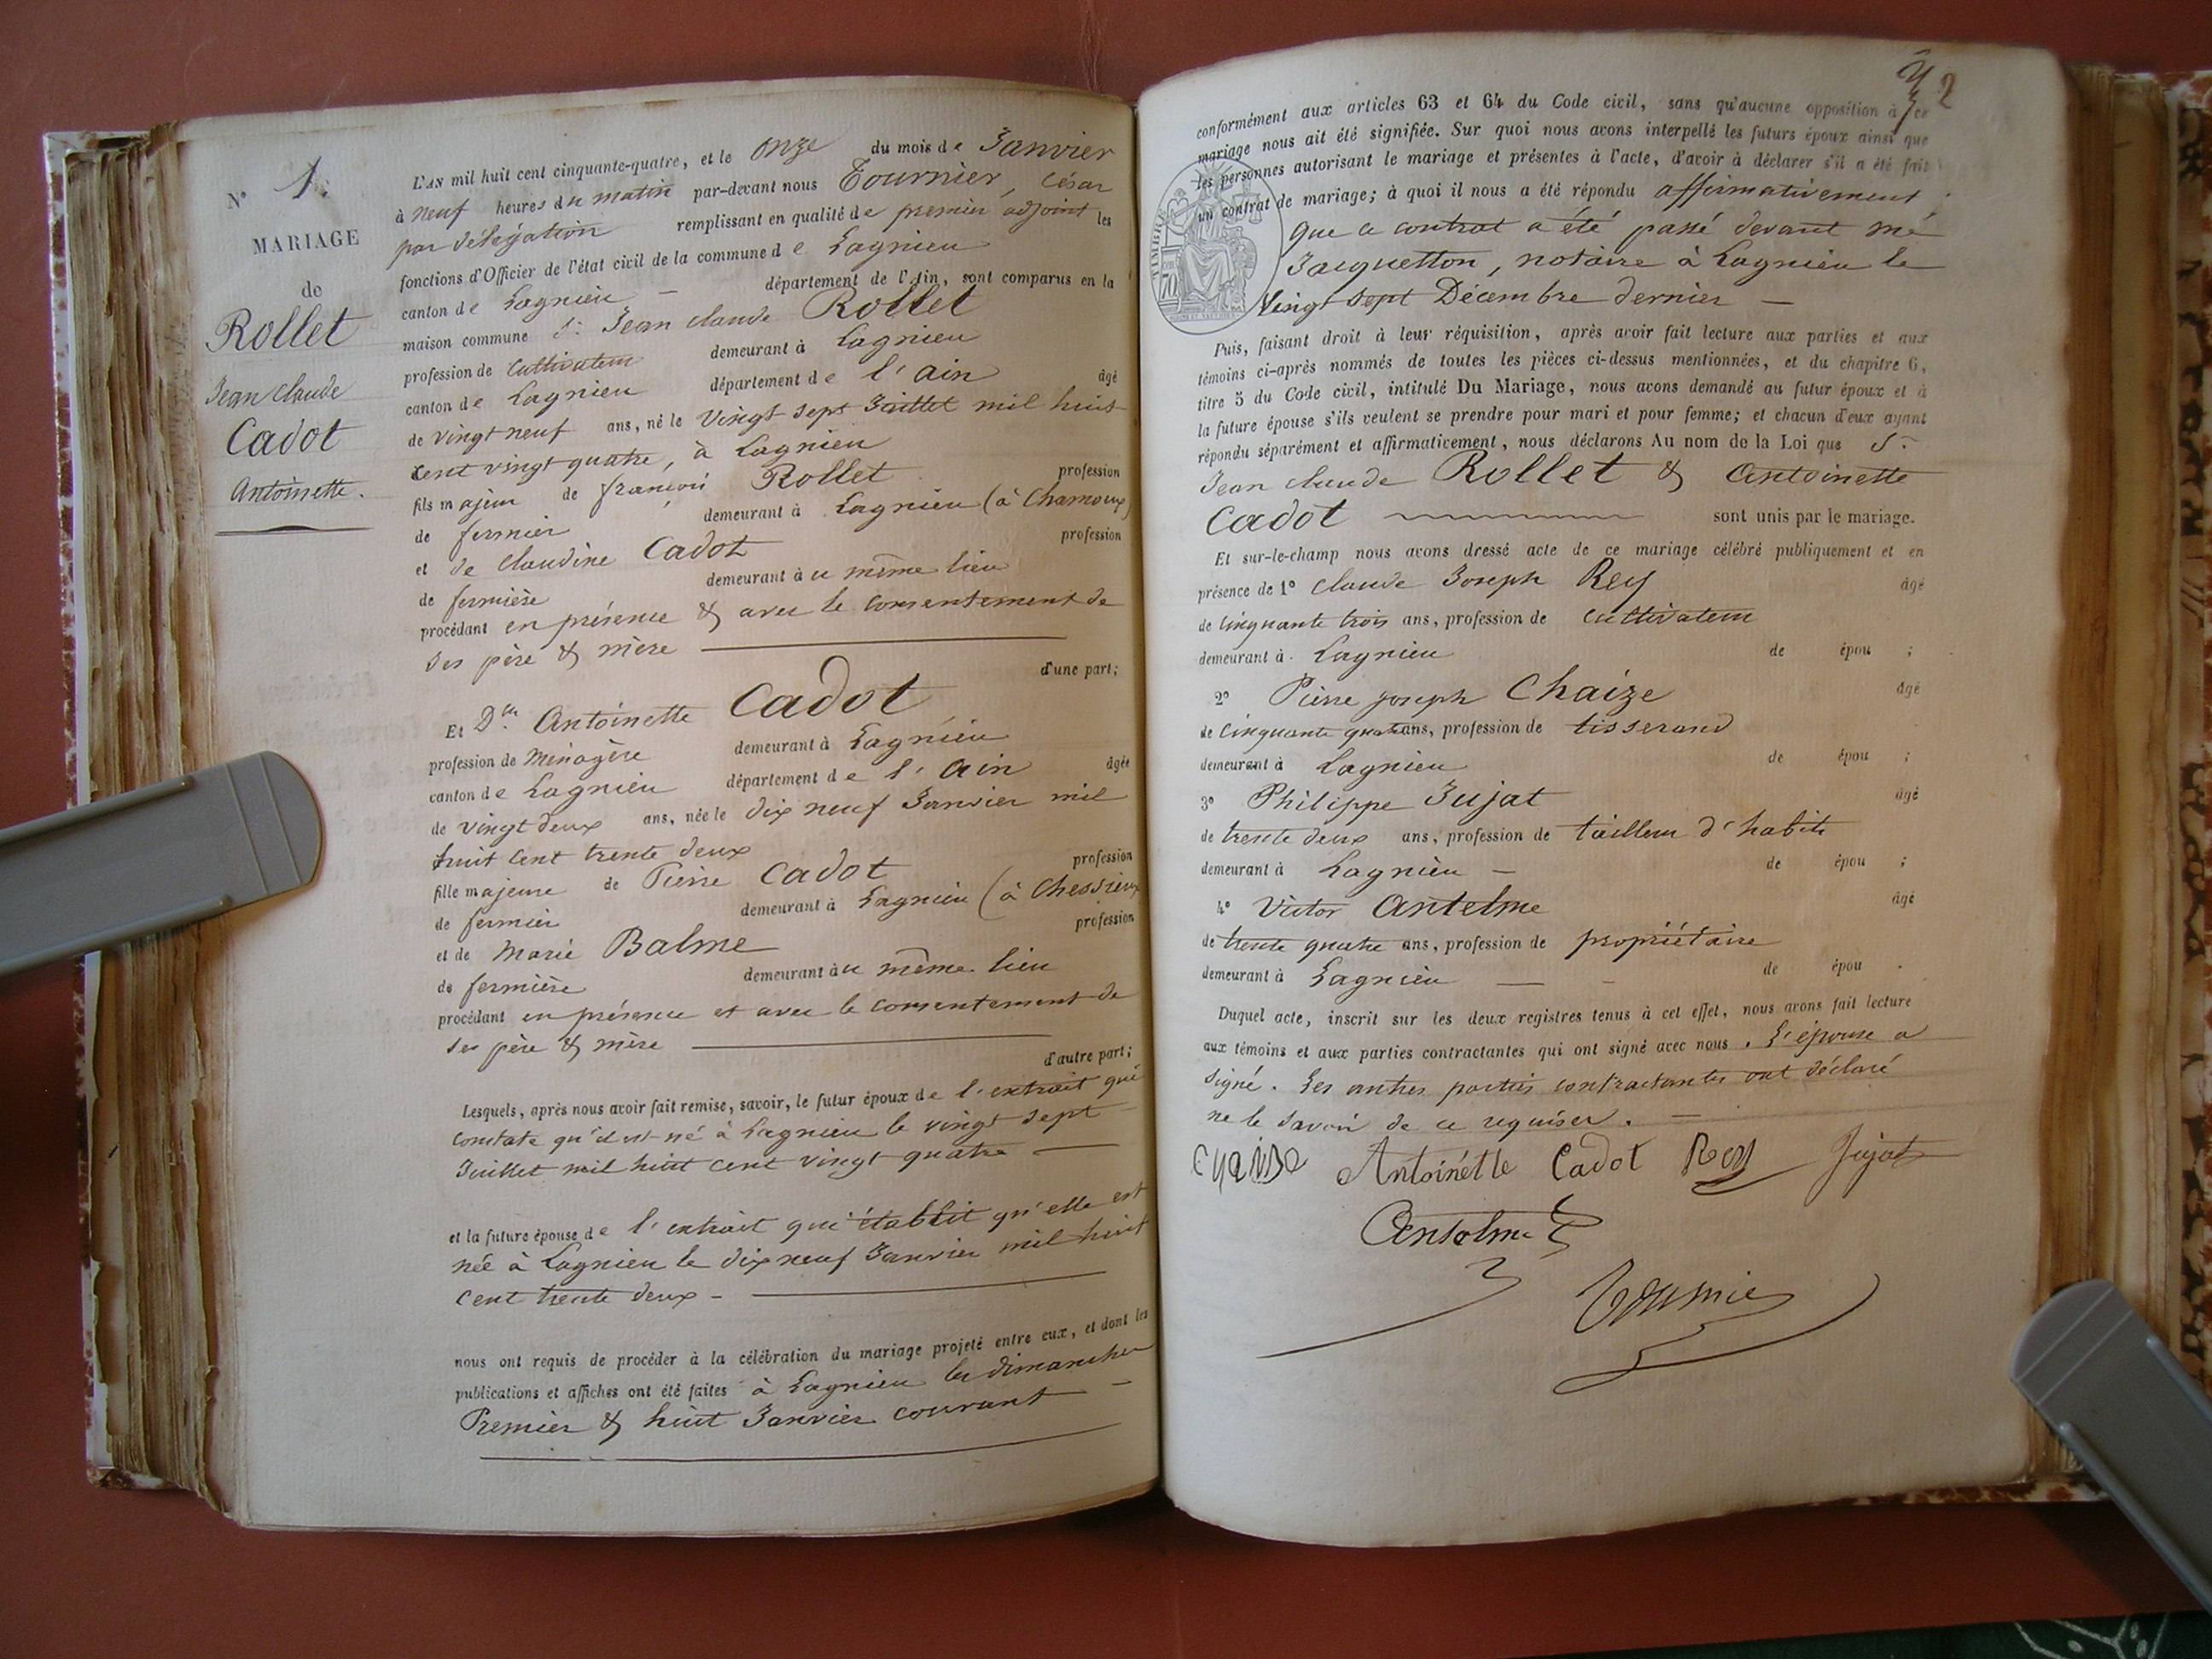 N° 1.
MARIAGE
de
Rollet
Jean Claude
Cadot
Antoinette.
L'AN mil huit cent cinquante-quatre, et le onze du mois de Janvier
à neuf heures du matin par-devant nous Tournier, César
par délégation remplissant en qualité de premier adjoint les
fonctions d'Officier de l'état civil de la commune de Lagnieu
canton de Lagnieu département de l'Ain, sont comparus en la
maison commune Sr Jean Claude Rollet
profession de cultivateur demeurant à Lagnieu
canton de Lagnieu département de l'ain âgé
de vingt neuf ans, né le vingt sept Juillet mil huit
cent vingt quatre, à Lagnieu
fils majeur de françois Rollet profession
de fermier demeurant à Lagnieu (à Chamoux)
et de Claudine Cadot profession
de fermière demeurant au même lieu
procédant en présence & avec le consentement de
ses père & mère
d'une part;
Et Dlle Antoinette Cadot
profession de Ménagère demeurant à Lagnieu
canton de Lagnieu département de l'Ain âgée
de vingt deux ans, née le dix neuf Janvier mil
huit cent trente deux
fille majeure de Pierre Cadot profession
de fermier demeurant à Lagnieu (à Chessieux
et de Marie Balme profession
de fermière demeurant au même lieu
procédant en présence et avec le consentement de
ses père & mère
d'autre part;
Lesquels, après nous avoir fait remise, savoir, le futur époux de l'extrait qui
constate qu'il est né à Lagnieu le vingt sept
Juillet mil huit cent vingt quatre
et la future épouse de l'extrait qui établit qu'elle est
née à Lagnieu le dix neuf Janvier mil huit
cent trente deux -
nous ont requis de procéder à la célébration du mariage projeté entre eux, et dont les
publications et affiches ont été faites à Lagnieu les dimanches
Premier & huit Janvier courant
2
conformément aux articles 63 et 64 du Code civil, sans qu'aucune opposition à ce
mariage nous ait été signifiée. Sur quoi nous avons interpellé les futurs époux ainsi que
les personnes autorisant le mariage et présentes à l'acte, d'avoir à déclarer s'il a été fait
un contrat de mariage; à quoi il nous a été répondu affirmativement
que ce contrat a été passé devant me
Jacquetton, notaire à Lagnieu le
Vingt sept Décembre dernier
Puis, faisant droit à leur réquisition, après avoir fait lecture aux parties et aux
témoins ci-après nommés de toutes les pièces ci-dessus mentionnées, et du chapitre 6,
titre 5 du Code civil, intitulé Du Mariage, nous avons demandé au futur époux et à
la future épouse s'ils veulent se prendre pour mari et pour femme; et chacun d'eux ayant
répondu séparément et affirmativement, nous déclarons Au nom de la Loi que Sr
Jean Claude Rollet & Antoinette
Cadot sont unis par le mariage.
Et sur-le-champ nous avons dressé acte de ce mariage célébré publiquement et en
présence de 1° Claude Joseph Rey âgé
de cinquante trois ans, profession de cultivateur
demeurant à Lagnieu de épou ;
2° Pierre joseph Chaize âgé
de cinquante quatre ans, profession de tisserand
demeurant à Lagnieu de épou ;
3° Philippe Jujat âgé
de trente deux ans, profession de tailleur d'habits
demeurant à Lagnieu de épou ;
4° Victor Antelme âgé
de trente quatre ans, profession de propriétaire
demeurant à Lagnieu de épou
Duquel acte, inscrit sur les deux registres tenus à cet effet, nous avons fait lecture
aux témoins et aux parties contractantes qui ont signé avec nous. L'épouse a
signé. Les autres parties contractantes ont déclaré
ne le savoir de ce requiser.
Antoinette Cadot Rey Jujat
Antelme
Tournier